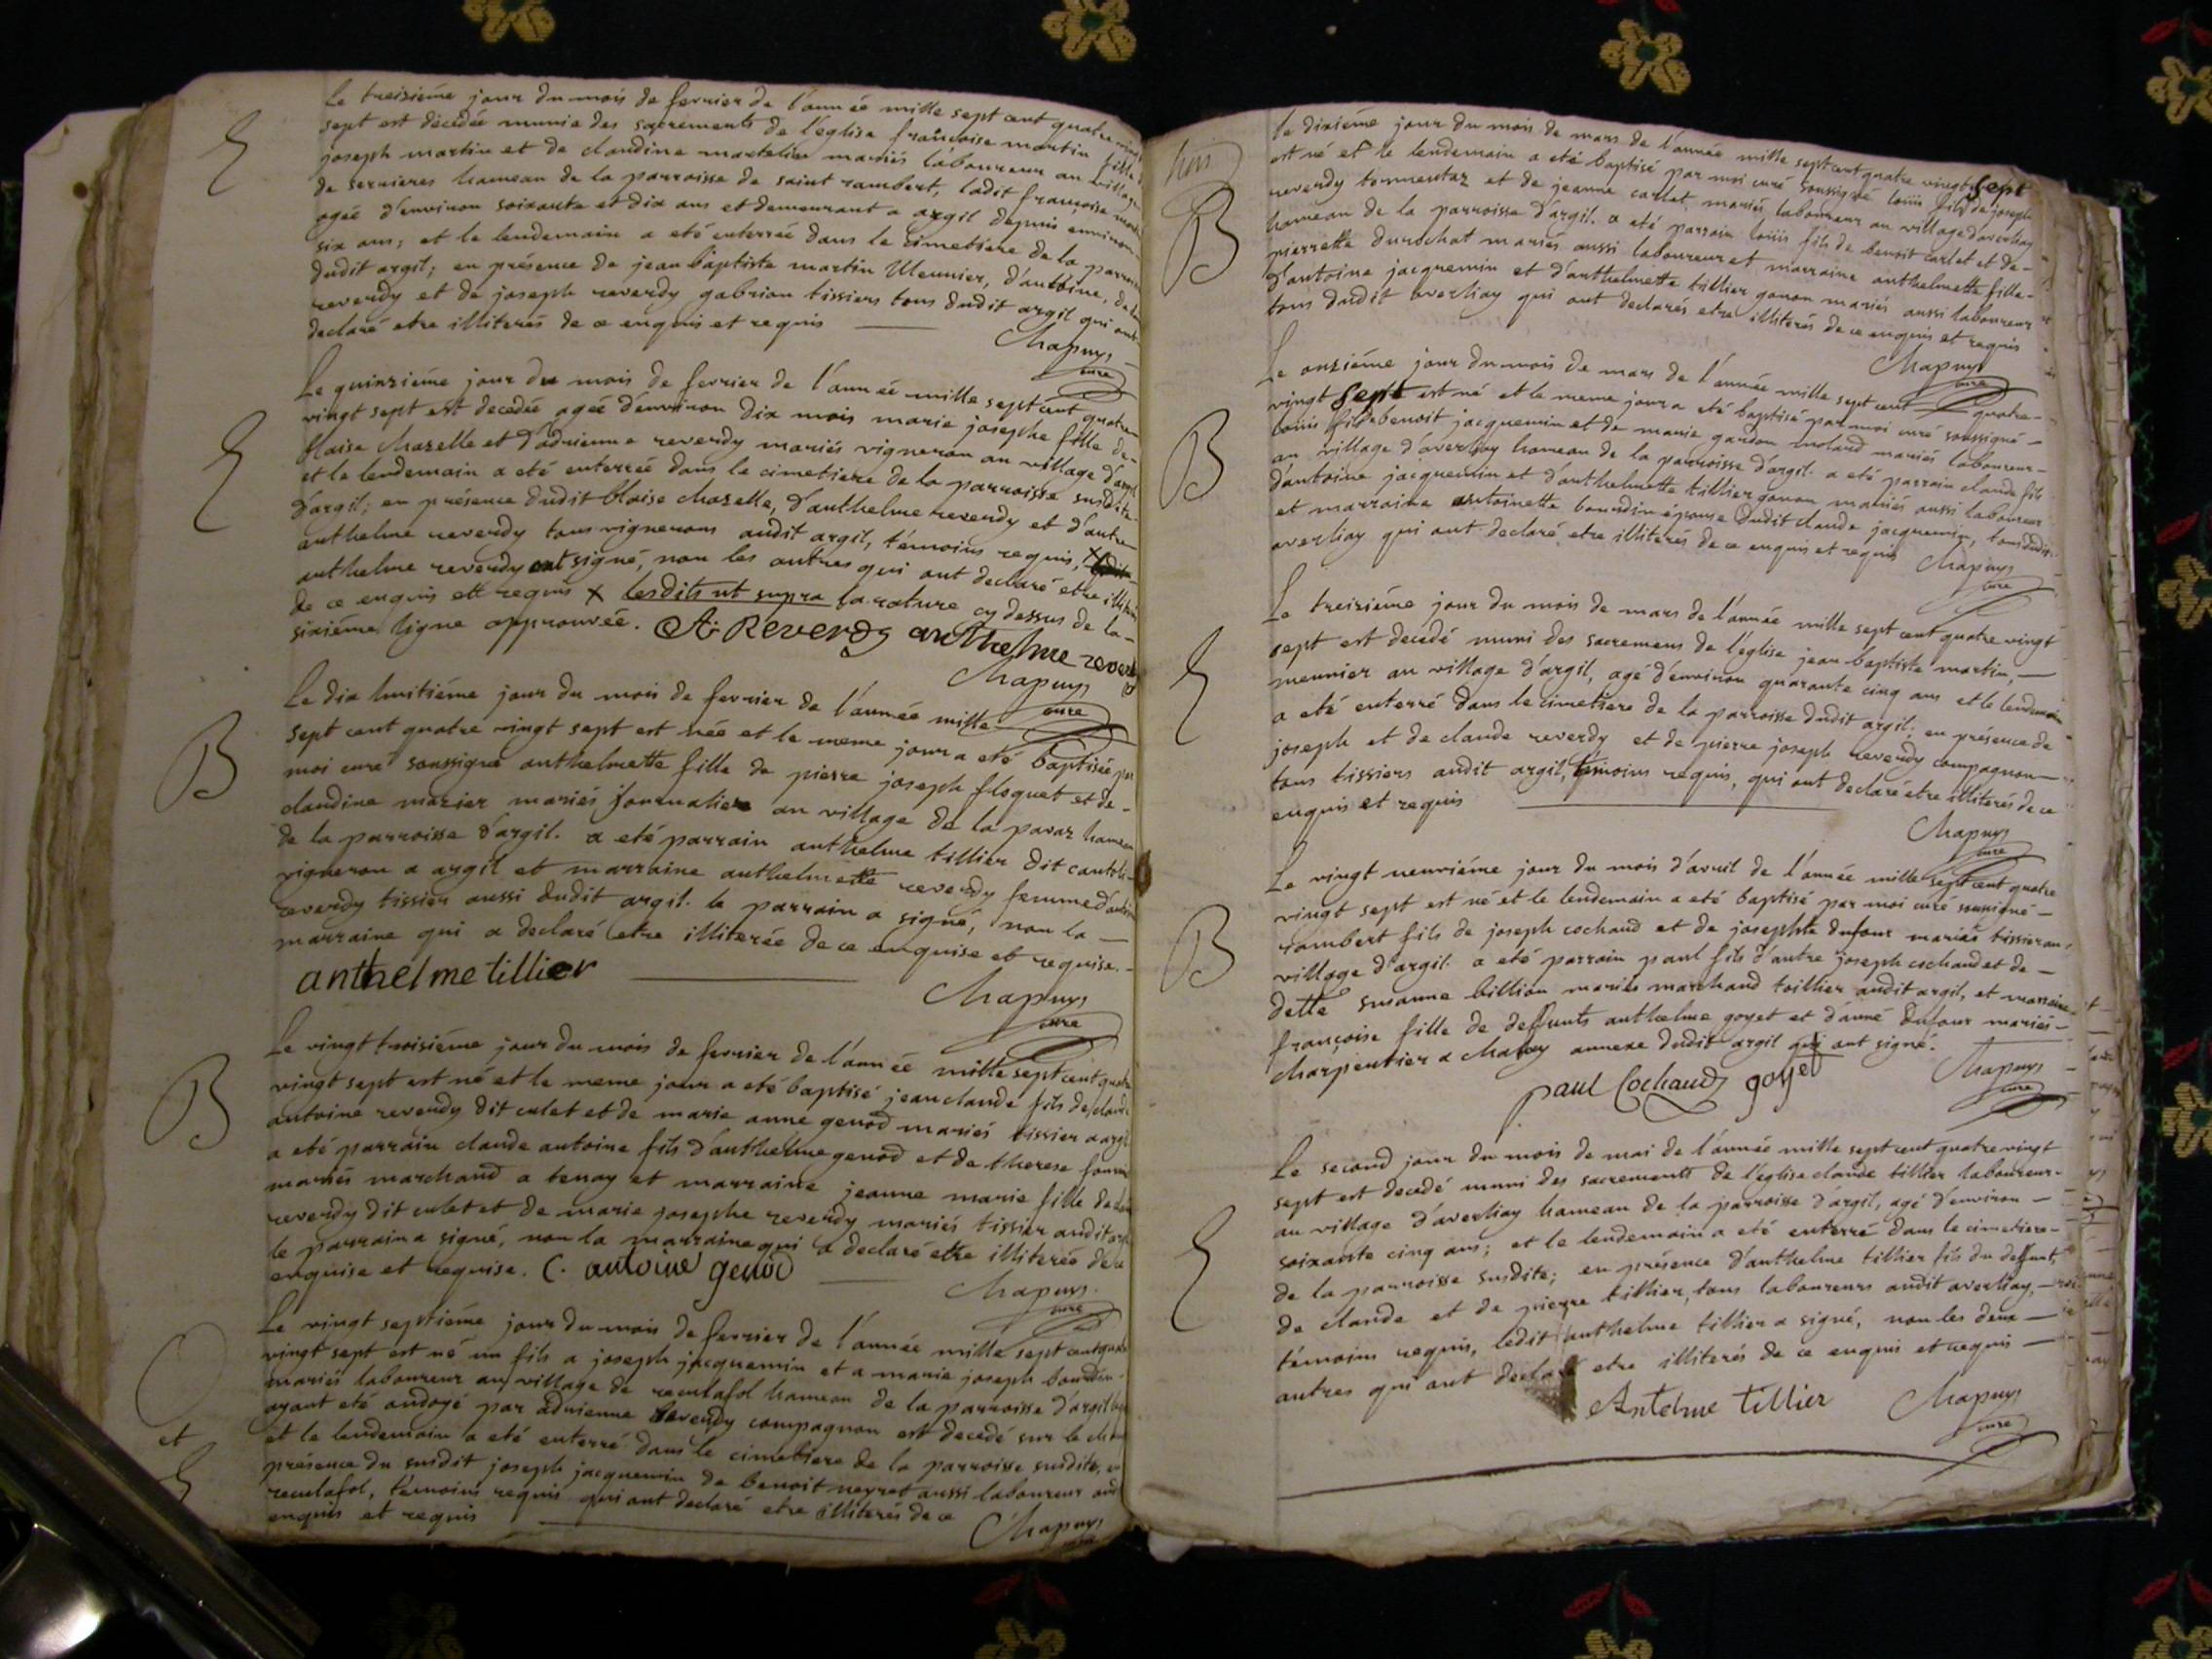 Le treisiéme jour du mois de fevrier de l'année mille sept cent quatre vingt
sept est décedée munie des sacrements de l'eglise francoise martin fille
joseph martin et de claudine martelin mariés laboureur au village
de serrieres hameau de la parroisse de saint rambert, ladit françoise martin
agée d'environ soixante et dix ans et demeurant a argil depuis environ
six ans; et le lendemain a eté enterrée dans le cimetiere de la parroisse
dudit argil; en présence de jean baptiste martin Meunier, d'antoine,
reverdy et de joseph reverdy gabrion tissiers tous dudit argil qui ont
declaré etre illiterés de ce enquis et requis
Chapuys
curé
Le quinziéme jour du mois de fevrier de l'année mille sept cent quatre
vingt sept est decedée agée d'environ dix mois marie josephe fille de
blaise chazelle et d'adrienne reverdy mariés vigneron au village d'argil
et le lendemain a eté enterrée dans le cimetiere de la parroisse susdite
d'argil; en présence dudit blaise chazelle, d'anthelme reverdy et d'autre
anthelme reverdy tous vignerons audit argil, témoins requis, X
anthelme reverdy ont signé, non les autres qui ont declaré etre
de ce enquis et requis X lesdits ut supra la rature cy dessus de la
sixiéme ligne approuvée. A. Reverdy anthelme reverdy
Chapuys
curé
Le dix huitiéme jour du mois de fevrier de l'année mille
B sept cent quatre vingt sept est née et le meme jour a eté baptisée par
moi curé soussigné anthelmette fille de pierre joseph floquet et de
claudine marier mariés journalier au village de la pavaz hameau
de la parroisse d'argil. a eté parrain anthelme tillier dit
vigneron a argil et marraine anthelmette reverdy femme
reverdy tissier aussi dudit argil. le parrain a signé, non la
marraine qui a declaré etre illiterée de ce enquise et requise.
anthelme tillier
Chapuys
curé
Le vingt troisiéme jour du mois de fevrier de l'année mille sept cent quatre
B vingt sept est né et le meme jour a eté baptisé jean claude fils de claude
antoine reverdy dit culet et de marie anne genod mariés tissier a argil
a eté parrain claude antoine fils d'anthelme genod et de therese
mariés marchand a tenay et marraine jeanne marie fille de
reverdy dit culet et de marie josephe reverdy mariés tissier audit argil
le parrain a signé, non la marraine qui a declaré etre illiterée de ce
enquise et requise. C. antoine genod
Chapuys
curé
Le vingt septiéme jour du mois de fevrier de l'année mille sept cent quatre
vingt sept est né un fils a joseph jacquemin et a marie joseph bourdin
mariés laboureur au village de reculafol hameau de la parroisse d'argil
ayant eté ondoyé par adrienne reverdy compagnon est decedé sur le champ
et et le lendemain a eté enterré dans le cimetiere de la parroisse susdite, en
présence du susdit joseph jacquemin de benoit neyret aussi laboureur audit
reculafol, témoins requis qui ont declaré etre illiterés de ce
enquis et requis
Chapuys
curé
le dixiéme jour du mois de mars de l'année mille sept cent quatre vingt sept
est né et le lendemain a eté baptisé par moi curé soussigné louis fils de joseph
B reverdy tormentaz et de jeanne carlet mariés laboureur au village d'averliay
hameau de la parroisse d'argil. a eté parrain louis fils de benoit carlet et de
pierrette durochat mariés aussi laboureur et marraine anthelmette fille
d'antoine jacquemin et d'anthelmette tillier gonon mariés aussi laboureur
tous dudit averliay qui ont declarés etre illiterés de ce enquis et requis
Chapuys
curé
Le onziéme jour du mois de mars de l'année mille sept cent quatre
vingt sept est né et le meme jour a eté baptisé par moi curé soussigné
B louis fils de benoit jacquemin et de marie gardon molard mariés laboureur
au village d'averliay hameau de la parroisse d'argil. a eté parrain claude fils
d'antoine jacquemin et d'anthelmette tillier gonon mariés aussi laboureur
et marraine antoinette bourdin épouse dudit claude jacquemin, tous dudit
averliay qui ont declaré etre illiterés de ce enquis et requis
Chapuys
curé
Le treiziéme jour du mois de mars de l'année mille sept cent quatre vingt
sept est decedé muni des sacremens de l'église jean baptiste martin,
meunier au village d'argil, agé d'environ quarante cinq ans et le lendemain
a eté enterré dans le cimetiere de la parroisse dudit argil; en présence de
joseph et de claude reverdy et de pierre joseph reverdy compagnon
tous tissiers audit argil, témoins requis, qui ont declaré etre illiterés de ce
enquis et requis
Chapuys
curé
Le vingt neuviéme jour du mois d'avril de l'année mille sept cent quatre
vingt sept est né et le lendemain a eté baptisé par moi curé soussigné
B rambert fils de joseph cochaud et de josephte dufour mariés tissier au
village d'argil. a eté parrain paul fils d'autre joseph cochaud et de
dette susanne billion mariés marchand toillier audit argil, et marraine
françoise fille de deffunts anthelme goyet et d'anne dufour mariés
charpentier a chaley annexe dudit argil qui ont signé.
paul Cochaud goyet
Chapuys
curé
Le second jour du mois de mai de l'année mille sept cent quatre vingt
sept est decedé muni des sacrements de l'église claude tillier laboureur
au village d'averliay hameau de la parroisse d'argil, agé d'environ
soixante cinq ans; et le lendemain a eté enterré dans le cimetiere
de la parroisse susdite; en présence d'anthelme tillier fils du deffunt,
de claude et de pierre tillier, tous laboureurs audit averliay,
témoins requis, ledit anthelme tillier a signé, non les deux
autres qui ont declaré etre illiterés de ce enquis et requis
Antelme tillier
Chapuys
curé